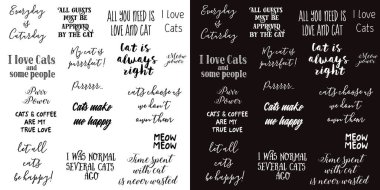 Everyday
is
Caturday
ALL GUESTS
MUST BE
APPROVED
BY THE CAT
ALL YOU NEED IS
LOVE AND CAT
I love
Cats
I love Cats
and
some people
My cat is
purrrfat!
Cat is
always
right
Meow
power
Purr
Power
Purrrrr...
cats choose us
we don't
own them
CATS & COFFEE
ARE MY
TRUE LOVE
Cats make
me happy
MEOW
MEOW
let all
cats
be happy!
I WAS NORMAL
SEVERAL CATS
AGO
Time spent
with cat
is never wasted
Everyday
is
Caturday
ALL GUESTS
MUST BE
APPROVED
BY THE CAT
ALL YOU NEED IS
LOVE AND CAT
I love
Cats
I love Cats
and
some people
My cat is
purrrfat!
Cat is
always
right
Meow
power
Purr
Power
Purrrrr...
cats choose us
we don't
own them
CATS & COFFEE
ARE MY
TRUE LOVE
Cats make
me happy
MEOW
MEOW
let all
cats
be happy!
I WAS NORMAL
SEVERAL CATS
AGO
Time spent
with cat
is never wasted